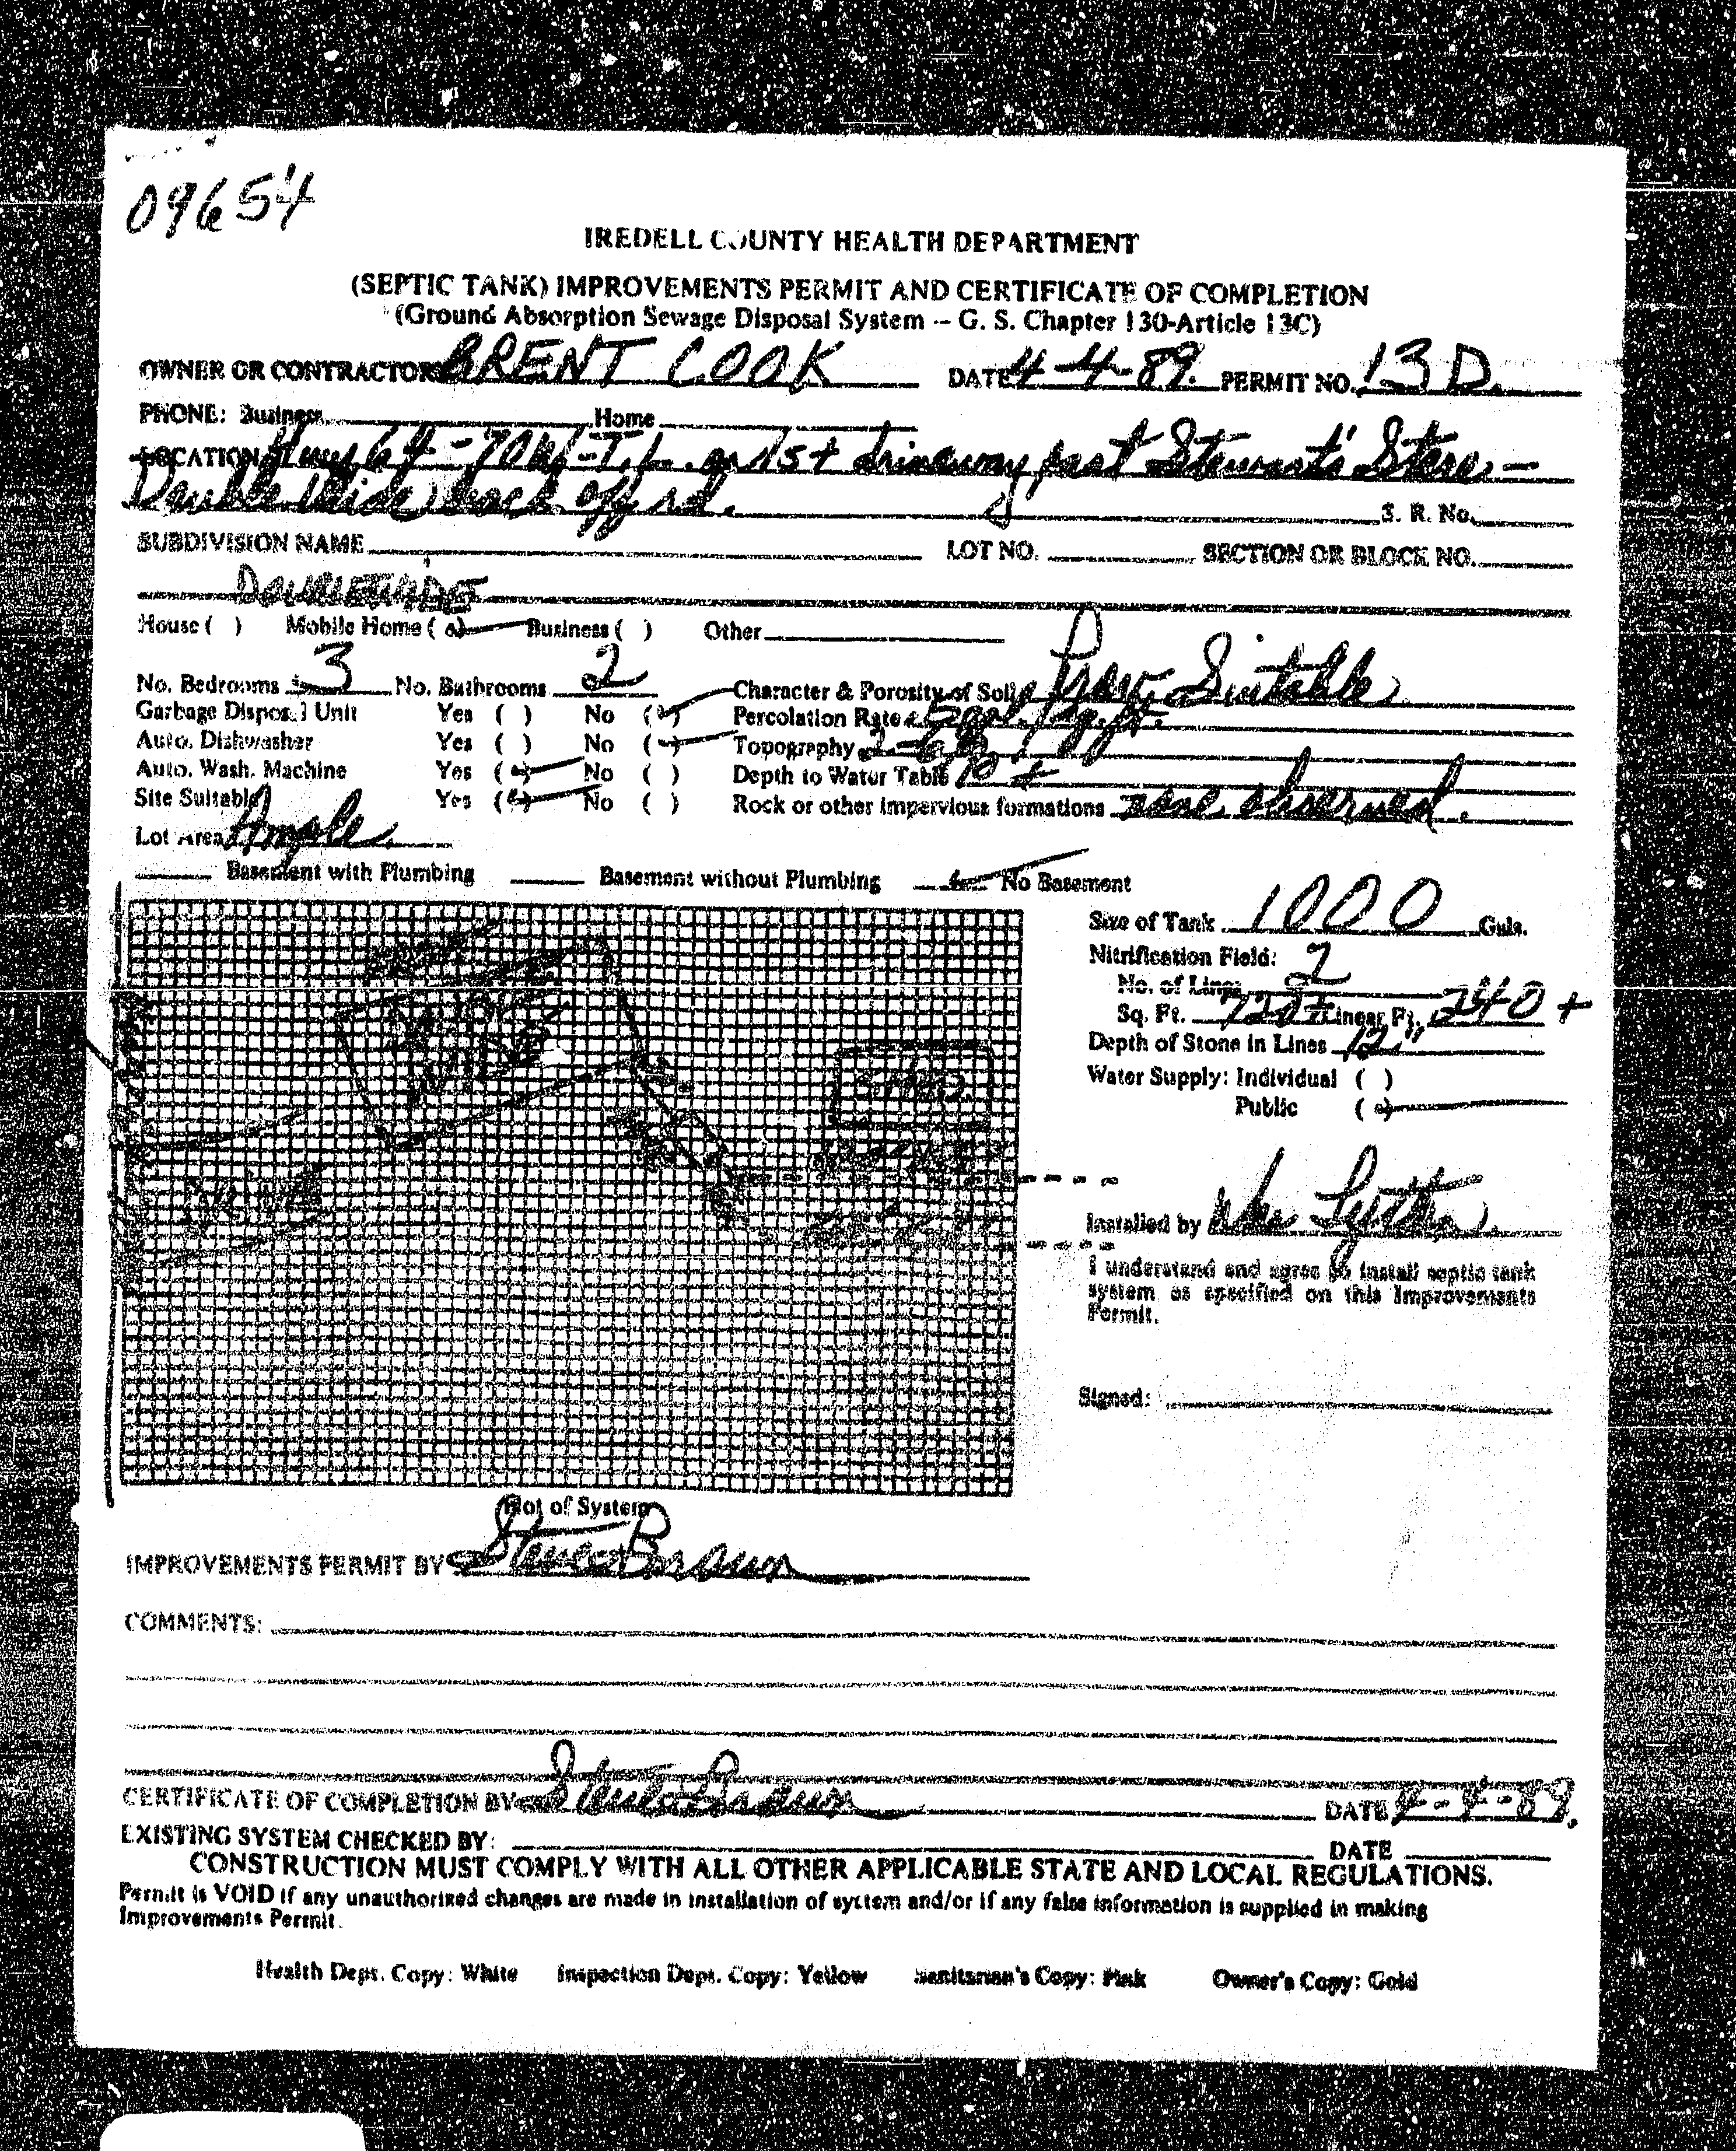 09654
IREDELL COUNTY HEALTH DEPARTMENT
(SEPTIC TANK) IMPROVEMENTS PERMIT AND CERTIFICATE OF COMPLETION
(Ground Absorption Sewage Disposal System -- G. S. Chapter 130-Article 13C)
OWNER OR CONTRACTOR BRENT COOK DATE 4-4-89. PERMIT NO. 13 D.
PHONE: Business Home
LOCATION Hwy 64-70W-T.L. on 1st driveway past Stewart's Store -
Double Wide back off rd. S. R. No.
SUBDIVISION NAME LOT NO. SECTION OR BLOCK NO.
DOUBLEWIDE
House ( ) Mobile Home ( ) Business ( ) Other
No. Bedrooms 3 No. Bathrooms 2 Character & Porosity of Soil Prov. Suitable
Garbage Disposal Unit Yes ( ) No ( ) Percolation Rate
Auto. Dishwasher Yes ( ) No ( ) Topography
Auto. Wash. Machine Yes ( ) No ( ) Depth to Water Table 10 +
Site Suitable Yes ( ) No ( ) Rock or other impervious formations none observed.
Lot Area Ample.
Basement with Plumbing Basement without Plumbing No Basement
Size of Tank 1000 Gals.
Nitrification Field:
No. of Lines 2
Sq. Ft. 720+ Linear Ft. 240 +
Depth of Stone in Lines 12"
Water Supply: Individual ( )
Public ( )
Installed by
I understand and agree to install septic tank
system as specified on this Improvements
Permit.
Signed:
Plot of System
IMPROVEMENTS PERMIT BY Steve Brown
COMMENTS:
CERTIFICATE OF COMPLETION BY Steve Brown DATE 4-4-89.
EXISTING SYSTEM CHECKED BY: DATE
CONSTRUCTION MUST COMPLY WITH ALL OTHER APPLICABLE STATE AND LOCAL REGULATIONS.
Permit is VOID if any unauthorized changes are made in installation of system and/or if any false information is supplied in making
Improvements Permit.
Health Dept. Copy: White Inspection Dept. Copy: Yellow Sanitarian's Copy: Pink Owner's Copy: Gold